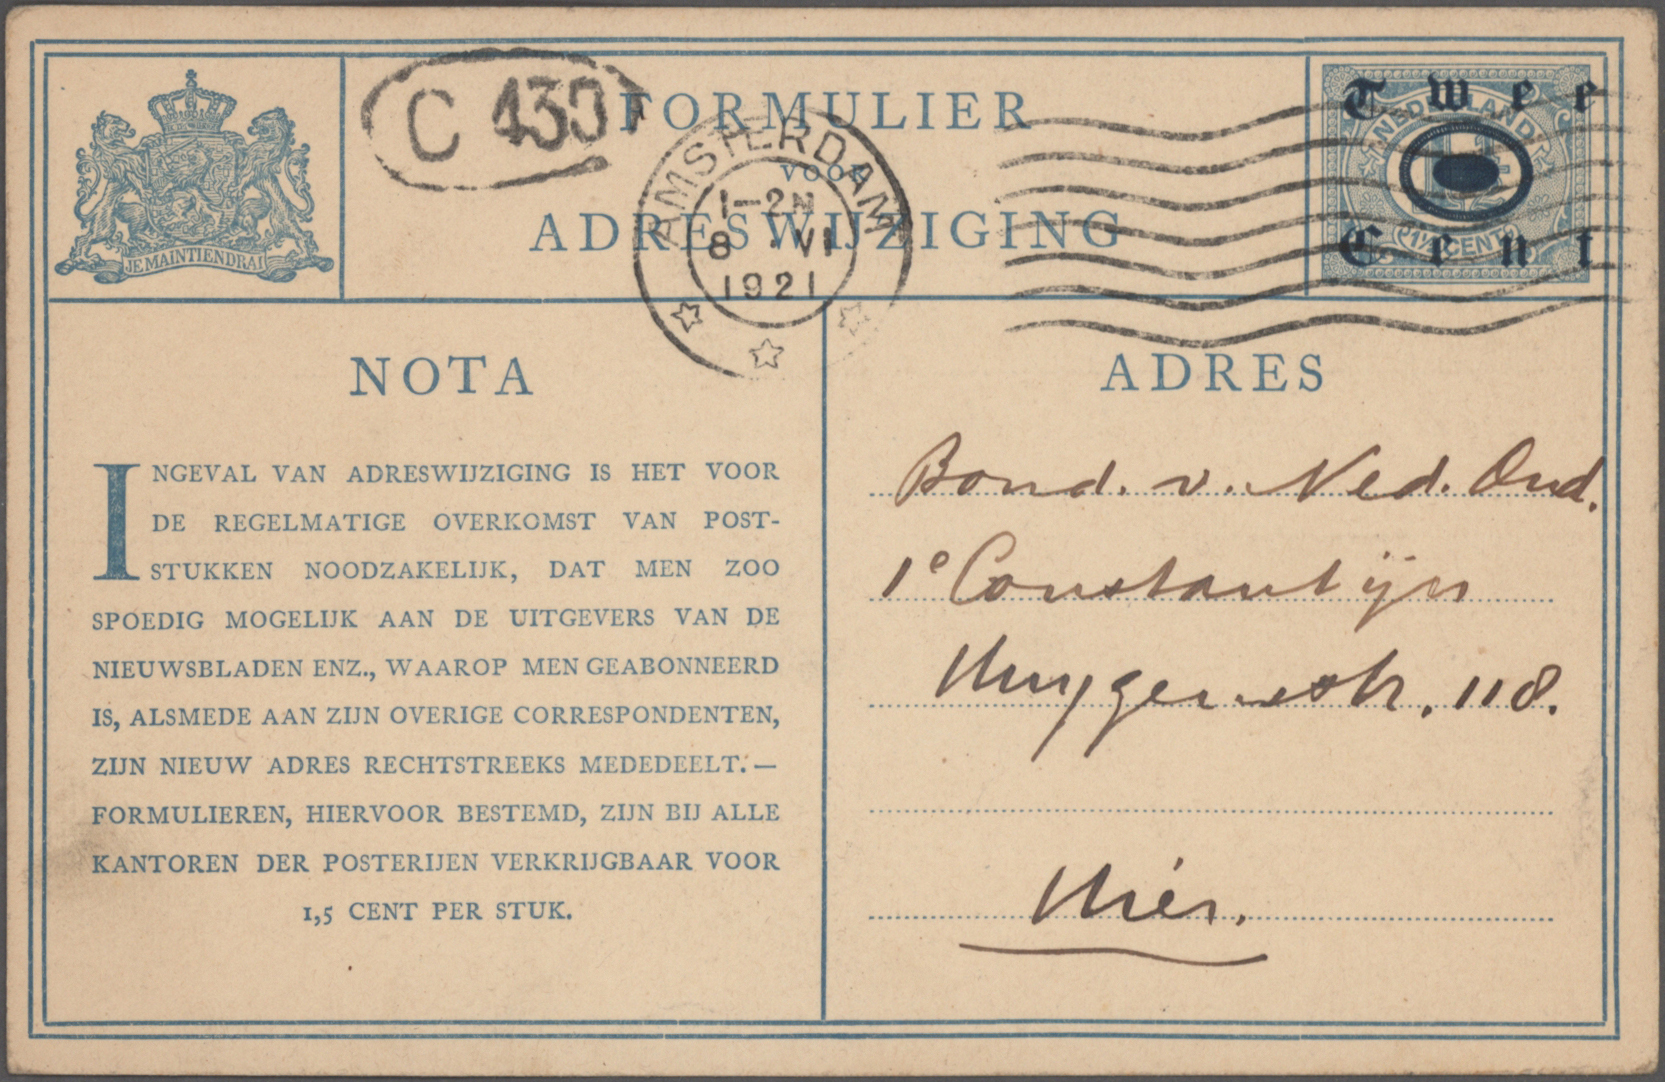 JE MAINTIENDRAI
C 430
FORMULIER
VOOR
ADRESWIJZIGING
AMSTERDAM
1-2N
8 VI
1921
NEDERLAND
Twee
Cent
1½ CENT
NOTA
INGEVAL VAN ADRESWIJZIGING IS HET VOOR
DE REGELMATIGE OVERKOMST VAN POST-
STUKKEN NOODZAKELIJK, DAT MEN ZOO
SPOEDIG MOGELIJK AAN DE UITGEVERS VAN DE
NIEUWSBLADEN ENZ., WAAROP MEN GEABONNEERD
IS, ALSMEDE AAN ZIJN OVERIGE CORRESPONDENTEN,
ZIJN NIEUW ADRES RECHTSTREEKS MEDEDEELT. —
FORMULIEREN, HIERVOOR BESTEMD, ZIJN BIJ ALLE
KANTOREN DER POSTERIJEN VERKRIJGBAAR VOOR
1,5 CENT PER STUK.
ADRES
Bond. v. Ned. Ond.
1e Constantijn
Huygensstr. 118.
Hier.